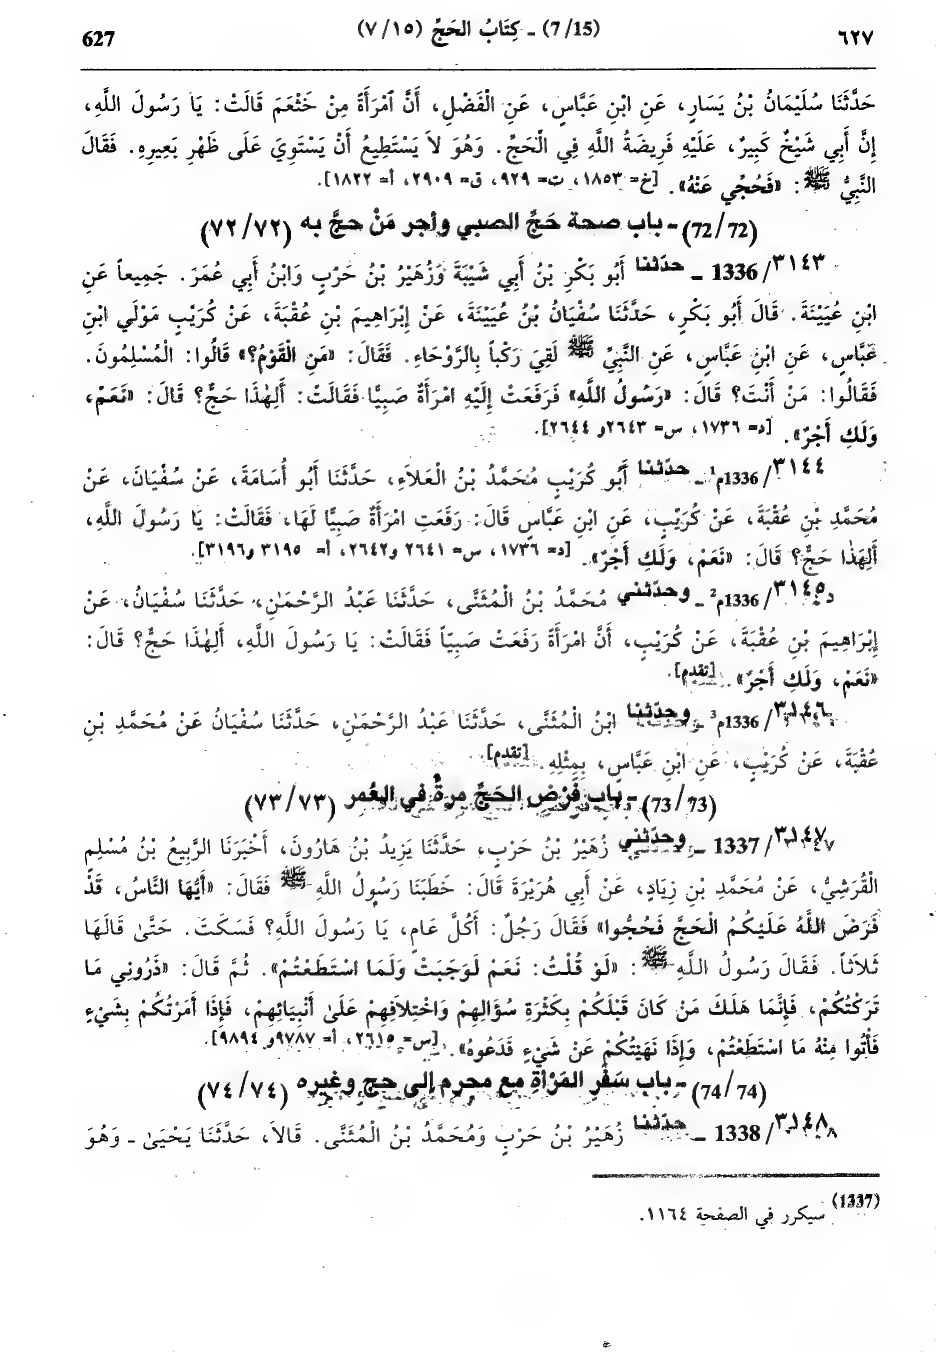 ٦٢٧ (7/15) - كِتَابُ الحَجِّ (٧/١٥) 627
حَدَّثَنَا سُلَيْمَانُ بْنُ يَسَارٍ، عَنِ ابْنِ عَبَّاسٍ، عَنِ الْفَضْلِ، أَنَّ امْرَأَةً مِنْ خَثْعَمَ قَالَتْ: يَا رَسُولَ اللَّهِ،
إِنَّ أَبِي شَيْخٌ كَبِيرٌ، عَلَيْهِ فَرِيضَةُ اللَّهِ فِي الْحَجِّ. وَهُوَ لاَ يَسْتَطِيعُ أَنْ يَسْتَوِيَ عَلَى ظَهْرِ بَعِيرِهِ. فَقَالَ
النَّبِيُّ ﷺ: «فَحُجِّي عَنْهُ». [خ= ١٨٥٣، ت= ٩٢٩، ق= ٢٩٠٩، أ= ١٨٢٢].
(72/72) - باب صحة حَجِّ الصبي وأجر مَنْ حجَّ به (٧٢/٧٢)
٣١٤٣/ 1336 - حدّثنا أَبُو بَكْرِ بْنُ أَبِي شَيْبَةَ وَزُهَيْرُ بْنُ حَرْبٍ وَابْنُ أَبِي عُمَرَ. جَمِيعاً عَنِ
ابْنِ عُيَيْنَةَ. قَالَ أَبُو بَكْرٍ، حَدَّثَنَا سُفْيَانُ بْنُ عُيَيْنَةَ، عَنْ إِبْرَاهِيمَ بْنِ عُقْبَةَ، عَنْ كُرَيْبٍ مَوْلَى ابْنِ
عَبَّاسٍ، عَنِ ابْنِ عَبَّاسٍ، عَنِ النَّبِيِّ ﷺ لَقِيَ رَكْباً بِالرَّوْحَاءِ. فَقَالَ: «مَنِ الْقَوْمُ؟» قَالُوا: الْمُسْلِمُونَ.
فَقَالُوا: مَنْ أَنْتَ؟ قَالَ: «رَسُولُ اللَّهِ» فَرَفَعَتْ إِلَيْهِ امْرَأَةٌ صَبِيًّا فَقَالَتْ: أَلِهَٰذَا حَجٌّ؟ قَالَ: «نَعَمْ،
وَلَكِ أَجْرٌ». [د= ١٧٣٦، س= ٢٦٤٣و ٢٦٤٤].
٣١٤٤/ 1336م¹ - حدّثنا أَبُو كُرَيْبٍ مُحَمَّدُ بْنُ الْعَلاَءِ، حَدَّثَنَا أَبُو أُسَامَةَ، عَنْ سُفْيَانَ، عَنْ
مُحَمَّدِ بْنِ عُقْبَةَ، عَنْ كُرَيْبٍ، عَنِ ابْنِ عَبَّاسٍ قَالَ: رَفَعَتِ امْرَأَةٌ صَبِيًّا لَهَا، فَقَالَتْ: يَا رَسُولَ اللَّهِ،
أَلِهَٰذَا حَجٌّ؟ قَالَ: «نَعَمْ، وَلَكِ أَجْرٌ». [د= ١٧٣٦، س= ٢٦٤١ و٢٦٤٢، أ= ٣١٩٥ و٣١٩٦].
٣١٤٥/ 1336م² - وحدّثني مُحَمَّدُ بْنُ الْمُثَنَّى، حَدَّثَنَا عَبْدُ الرَّحْمَٰنِ، حَدَّثَنَا سُفْيَانُ، عَنْ
إِبْرَاهِيمَ بْنِ عُقْبَةَ، عَنْ كُرَيْبٍ، أَنَّ امْرَأَةً رَفَعَتْ صَبِيّاً فَقَالَتْ: يَا رَسُولَ اللَّهِ، أَلِهَٰذَا حَجٌّ؟ قَالَ:
«نَعَمْ، وَلَكِ أَجْرٌ». [تقدم].
٣١٤٦/ 1336م³ - وحدّثنا ابْنُ الْمُثَنَّى، حَدَّثَنَا عَبْدُ الرَّحْمَٰنِ، حَدَّثَنَا سُفْيَانُ عَنْ مُحَمَّدِ بْنِ
عُقْبَةَ، عَنْ كُرَيْبٍ، عَنِ ابْنِ عَبَّاسٍ، بِمِثْلِهِ. [تقدم].
(73/73) - باب فَرْضِ الحَجِّ مرةً في العُمر (٧٣/٧٣)
٣١٤٧/ 1337 - وحدّثني زُهَيْرُ بْنُ حَرْبٍ، حَدَّثَنَا يَزِيدُ بْنُ هَارُونَ، أَخْبَرَنَا الرَّبِيعُ بْنُ مُسْلِمٍ
الْقُرَشِيُّ، عَنْ مُحَمَّدِ بْنِ زِيَادٍ، عَنْ أَبِي هُرَيْرَةَ قَالَ: خَطَبَنَا رَسُولُ اللَّهِ ﷺ فَقَالَ: «أَيُّهَا النَّاسُ، قَدْ
فَرَضَ اللَّهُ عَلَيْكُمُ الْحَجَّ فَحُجُّوا» فَقَالَ رَجُلٌ: أَكُلَّ عَامٍ، يَا رَسُولَ اللَّهِ؟ فَسَكَتَ. حَتَّىٰ قَالَهَا
ثَلاَثاً. فَقَالَ رَسُولُ اللَّهِ ﷺ: «لَوْ قُلْتُ: نَعَمْ لَوَجَبَتْ وَلَمَا اسْتَطَعْتُمْ». ثُمَّ قَالَ: «ذَرُونِي مَا
تَرَكْتُكُمْ، فَإِنَّمَا هَلَكَ مَنْ كَانَ قَبْلَكُمْ بِكَثْرَةِ سُؤَالِهِمْ وَاخْتِلاَفِهِمْ عَلَىٰ أَنْبِيَائِهِمْ، فَإِذَا أَمَرْتُكُمْ بِشَيْءٍ
فَأْتُوا مِنْهُ مَا اسْتَطَعْتُمْ، وَإِذَا نَهَيْتُكُمْ عَنْ شَيْءٍ فَدَعُوهُ». [س= ٢٦١٥، أ= ٩٧٨٧و ٩٨٩٤].
(74/74) - باب سَفَرِ المَرْأةِ مع محرم إلى حج وغيره (٧٤/٧٤)
٣١٤٨/ 1338 - حدّثنا زُهَيْرُ بْنُ حَرْبٍ وَمُحَمَّدُ بْنُ الْمُثَنَّى. قَالاَ، حَدَّثَنَا يَحْيَىٰ - وَهُوَ
(1337) سيكرر في الصفحة ١١٦٤.